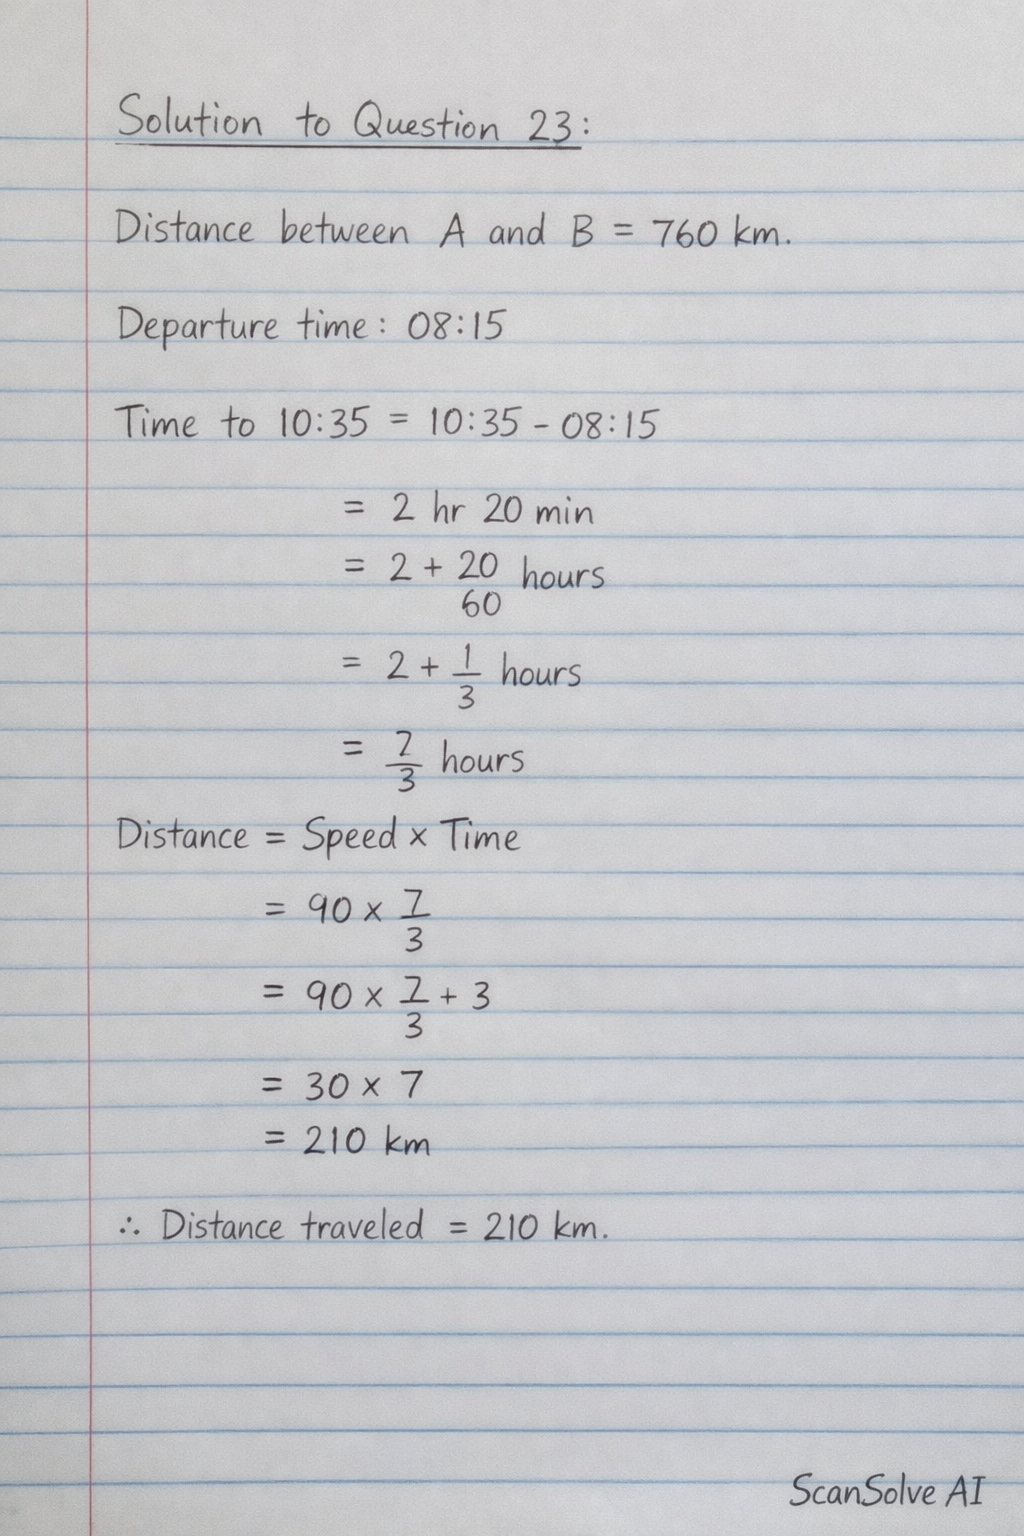 Solution to Question 23:
Distance between A and B = 760 km.
Departure time: 08:15
Time to 10:35 = 10:35 - 08:15
= 2 hr 20 min
= 2 + 20/60 hours
= 2 + 1/3 hours
= 7/3 hours
Distance = Speed × Time
= 90 × 7/3
= 90 × 7/3 + 3
= 30 × 7
= 210 km
∴ Distance traveled = 210 km.
ScanSolve AI